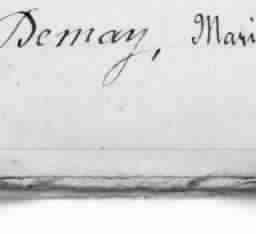 Demay, Mari